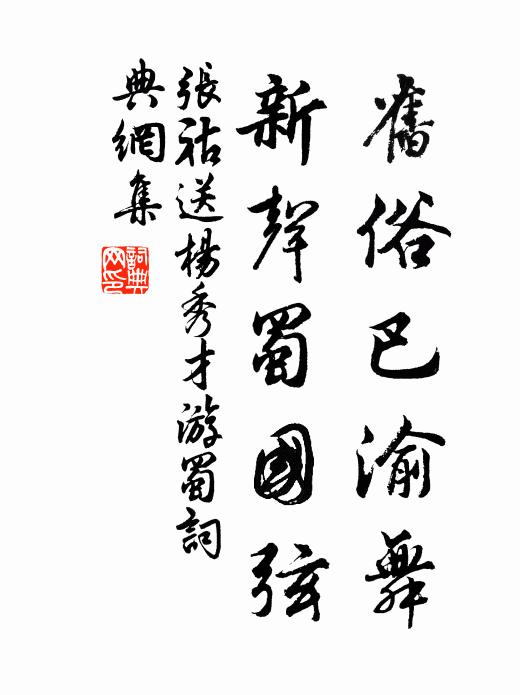 舊俗巴渝舞
新聲蜀國弦
張祜送楊秀才游蜀詞
典網集
詞典網印